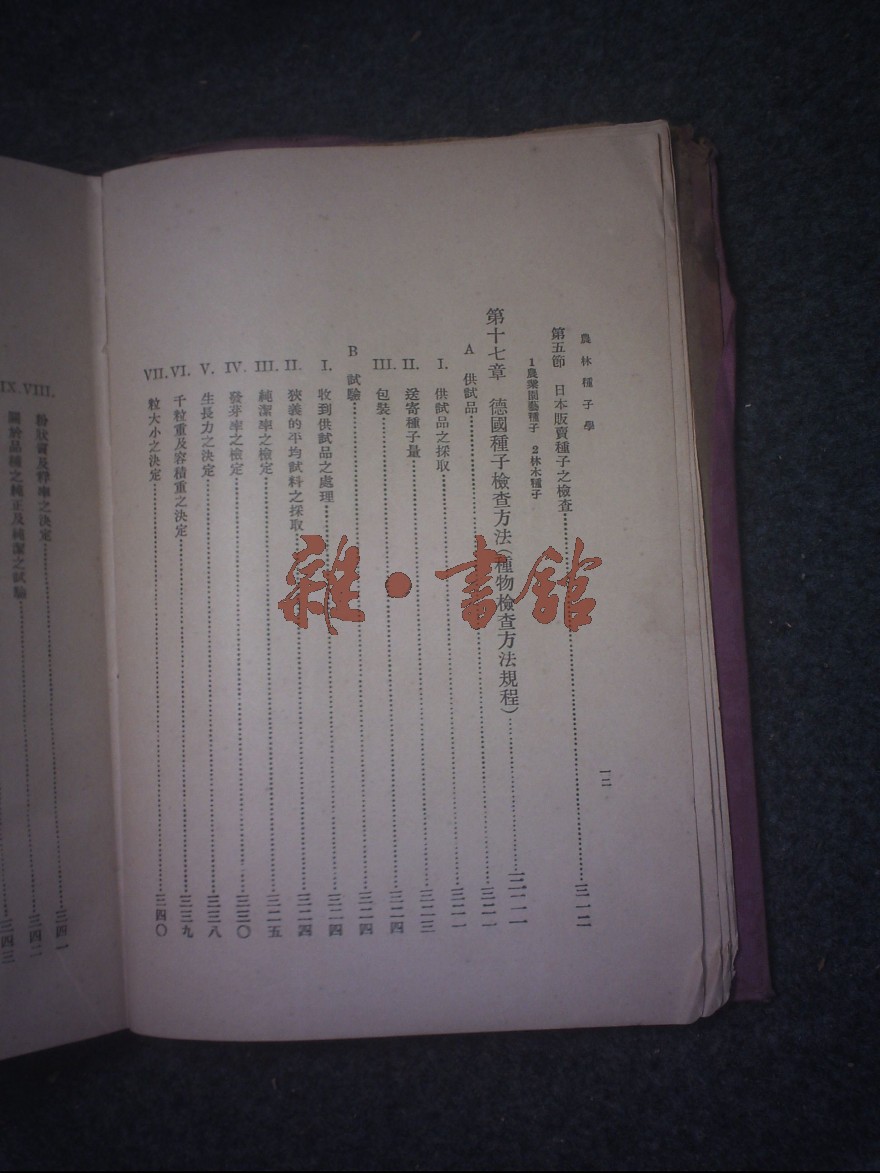 農林種子學
一二
第五節 日本販賣種子之檢查……三一二
1農業園藝種子 2林木種子
第十七章 德國種子檢查方法(種物檢查方法規程)……
A 供試品……三二二
I. 供試品之採取……三二二
II. 送寄種子量……三二三
III. 包裝……三二四
B 試驗……三二四
I. 收到供試品之處理……三二四
II. 狹義的平均試料之採取……三二四
III. 純潔率之檢定……三二五
IV. 發芽率之檢定……三三〇
V. 生長力之決定……三三八
VI. 千粒重及容積重之決定……三三九
VII. 粒大小之決定……三四〇
VIII. 粉狀質及稃率之決定……三四一
IX. 關於品種之純正及純潔之試驗……三四二
三四三
雜·書館